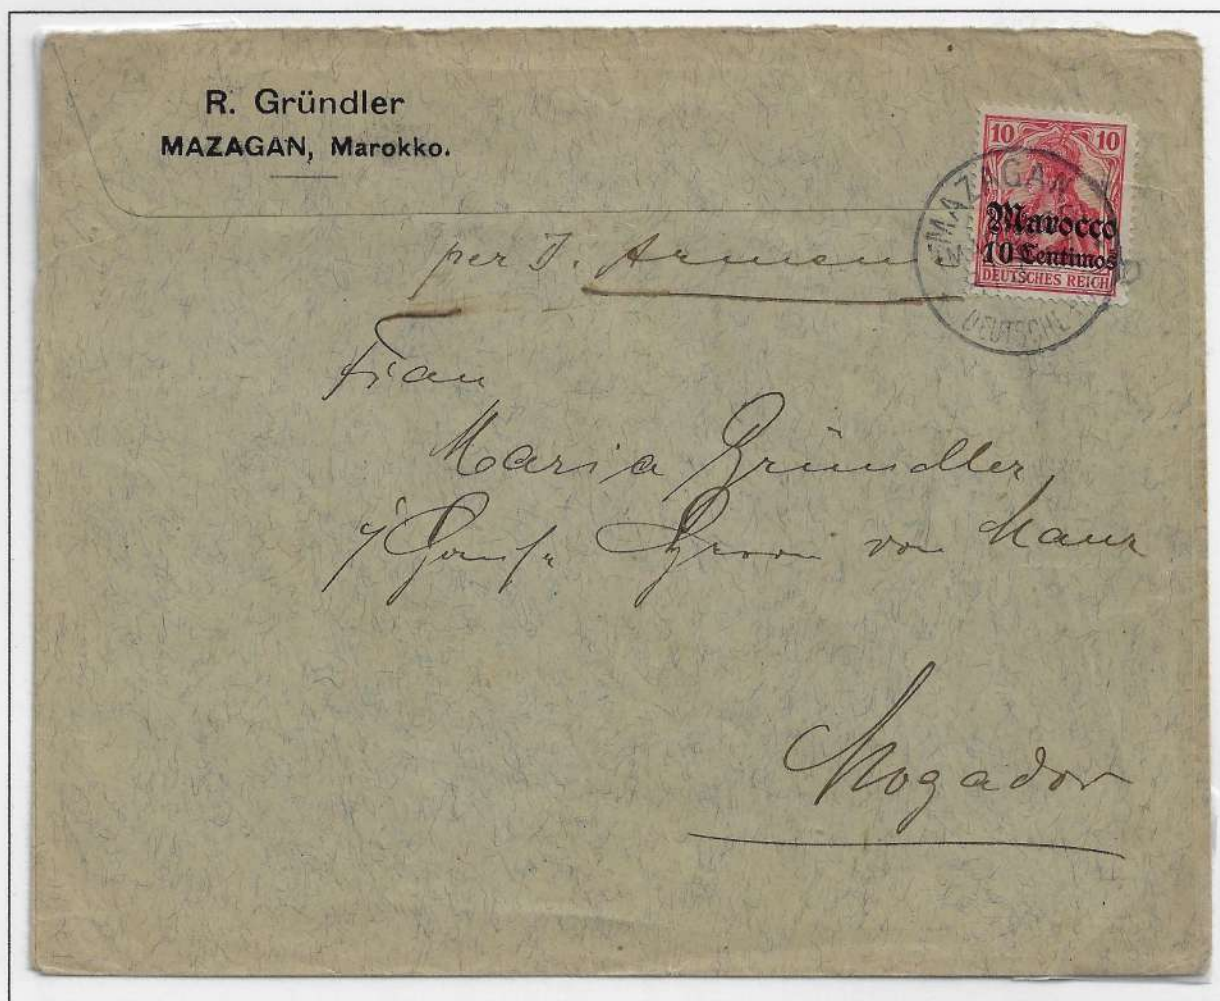 R. Gründler
MAZAGAN, Marokko.
10 10
Marocco
10 Centimos
DEUTSCHES REICH
MAZAGAN
DEUTSCHE
per
Frau
Maria Gründler
von Maur
Mogador